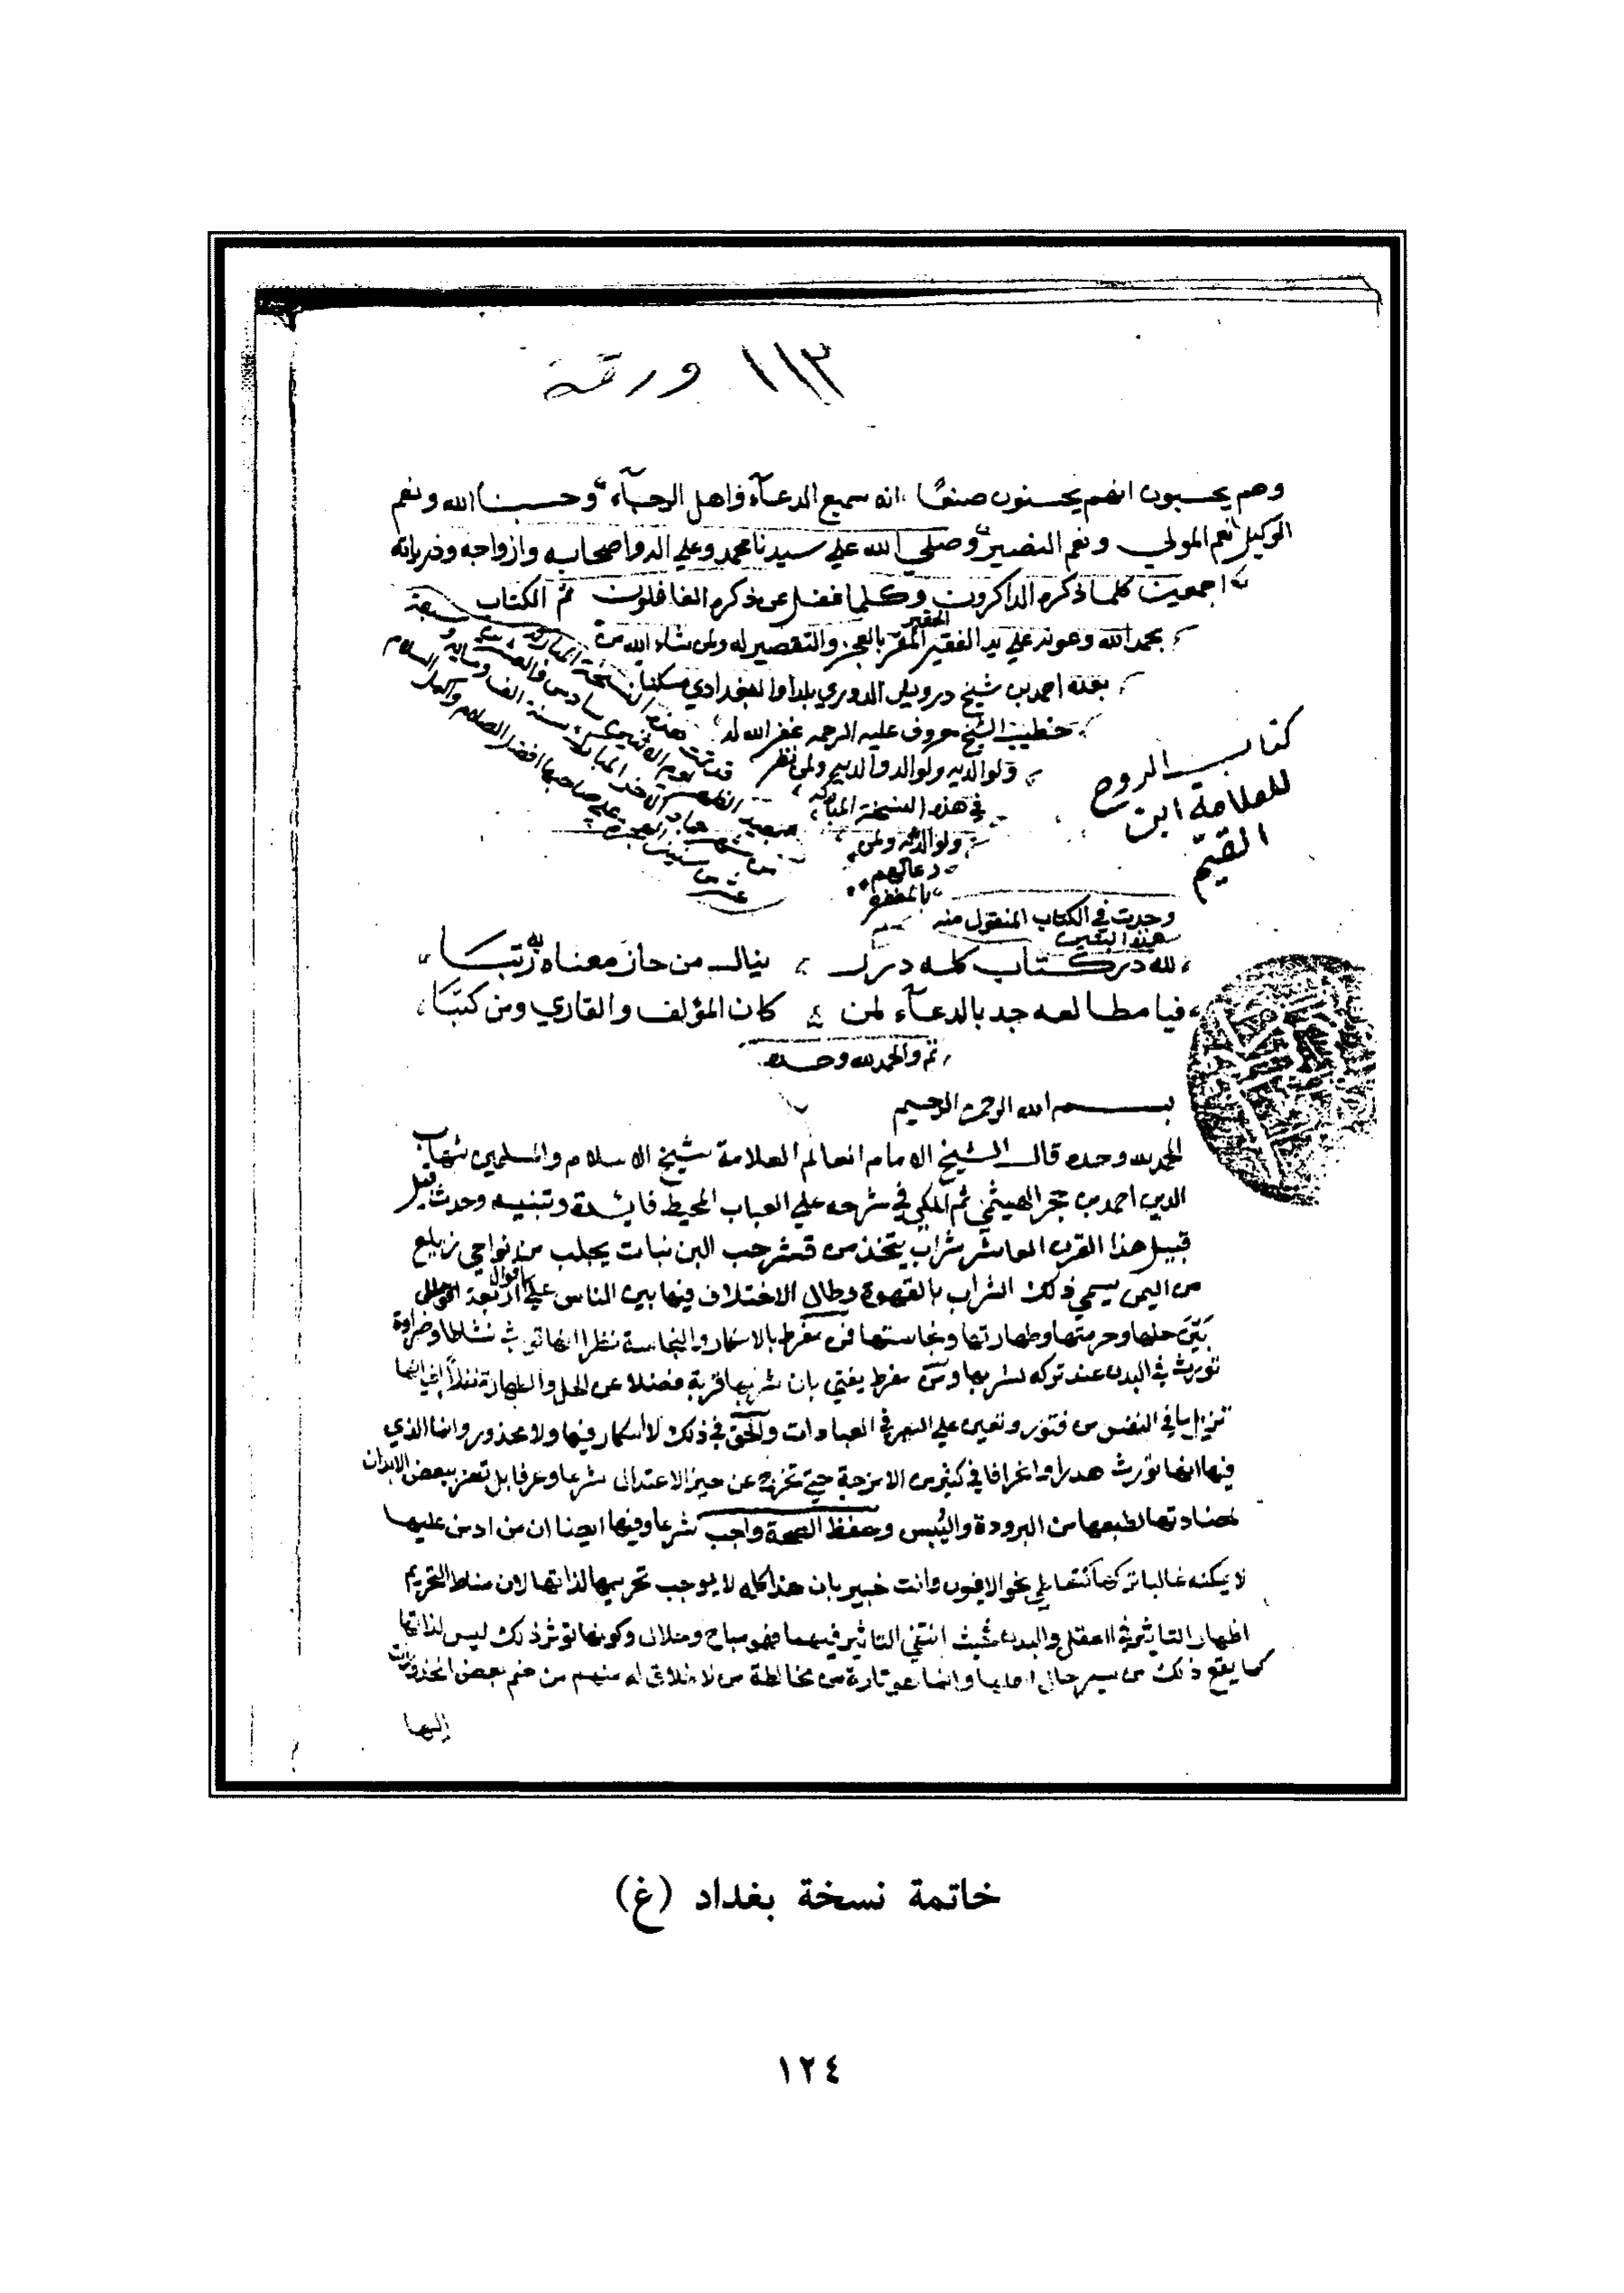 ١١٣ ورقة
وهم يحسبون انهم يحسنون صنعًا انه سميع الدعآء واهل الرجآء وحسبنا الله ونعم
الوكيل نعم المولي ونعم النصير وصلي الله علي سيدنا محمد وعلي اله واصحابه وازواجه وذرياته
اجمعين كلما ذكره الذاكرون وكلما غفل عن ذكره الغافلون تم الكتاب
بحمد الله وعونه علي يد الفقير الحقير المقر بالعجز والتقصير له ولمن شاء الله من
بعده احمد بن شيخ درويش الدوري بلدا والبغدادي مسكنا
خطيب الشيخ معروف عليه الرحمه غفر الله له
ولوالديه ولوالد والديه ولمن نظر
في هذه النسخة المباركه
ولوالديه ولمن
دعا لهم
بالمغفره
قد تمت هذه النسخة المباركة
كتاب الروح
للعلامة ابن
القيّم
وجدت في الكتاب المنقول منه
هذه البيتين
لله در كتاب كله درر ينال من حاز معناه به رتبا
فيا مطالعه جد بالدعآء لمن كان المؤلف والقاري ومن كتبا
تم والحمد لله وحده
بسم الله الرحمن الرحيم
الحمد لله وحده قال الشيخ الامام العالم العلامة شيخ الاسلام والمسلمين شهاب
الدين احمد بن حجر الهيثمي ثم المكي في شرحه علي العباب المحيط فايدة وتنبيه وحدث قبل
قبيل هذا القرن العاشر شراب يتخذ من قشر حب البن نبات يجلب من نواحي زيلع
من اليمن يسمي ذلك الشراب بالقهوة وطال الاختلاف فيها بين الناس علي اقوال
حلها وحرمتها وطهارتها ونجاستها فمن مفرط بالاسكار والنجاسة نظرا نشاطا وضراوة
تورث في البدن عند تركه لشربها ومن مفرط يفتي بان شربها قربة فضلا عن الحل والطهارة نظرا
تزيل ما في النفس من فتور وتعين علي السهر في العبادات والحق في ذلك لا اسكار فيها ولا مخدر وانما الذي
فيها انها تورث في كثير من الامزجة حتي تخرج عن حيز الاعتدال شرعا وعرفا بل تضر ببعض الابدان
لمضادتها لطبعها من البرودة واليبس وحفظ الصحة واجب شرعا وفيها ايضا ان من ادمن عليها
لا يمكنه غالبا تركها نحو الافيون وانت خبير بان هذا كله لا يوجب تحريمها لذاتها لان مناط التحريم
اظهار التاثير في العقل والبدن فحيث انتفي التاثير فيهما فهو مباح وحلال وكونها تؤثر ذلك ليس لذاتها
كما يقع ذلك من وانما هو تارة من مخالطة من لا خلاق له منهم من ضم بعض المخدرات
إليها
خاتمة نسخة بغداد (غ)
١٢٤